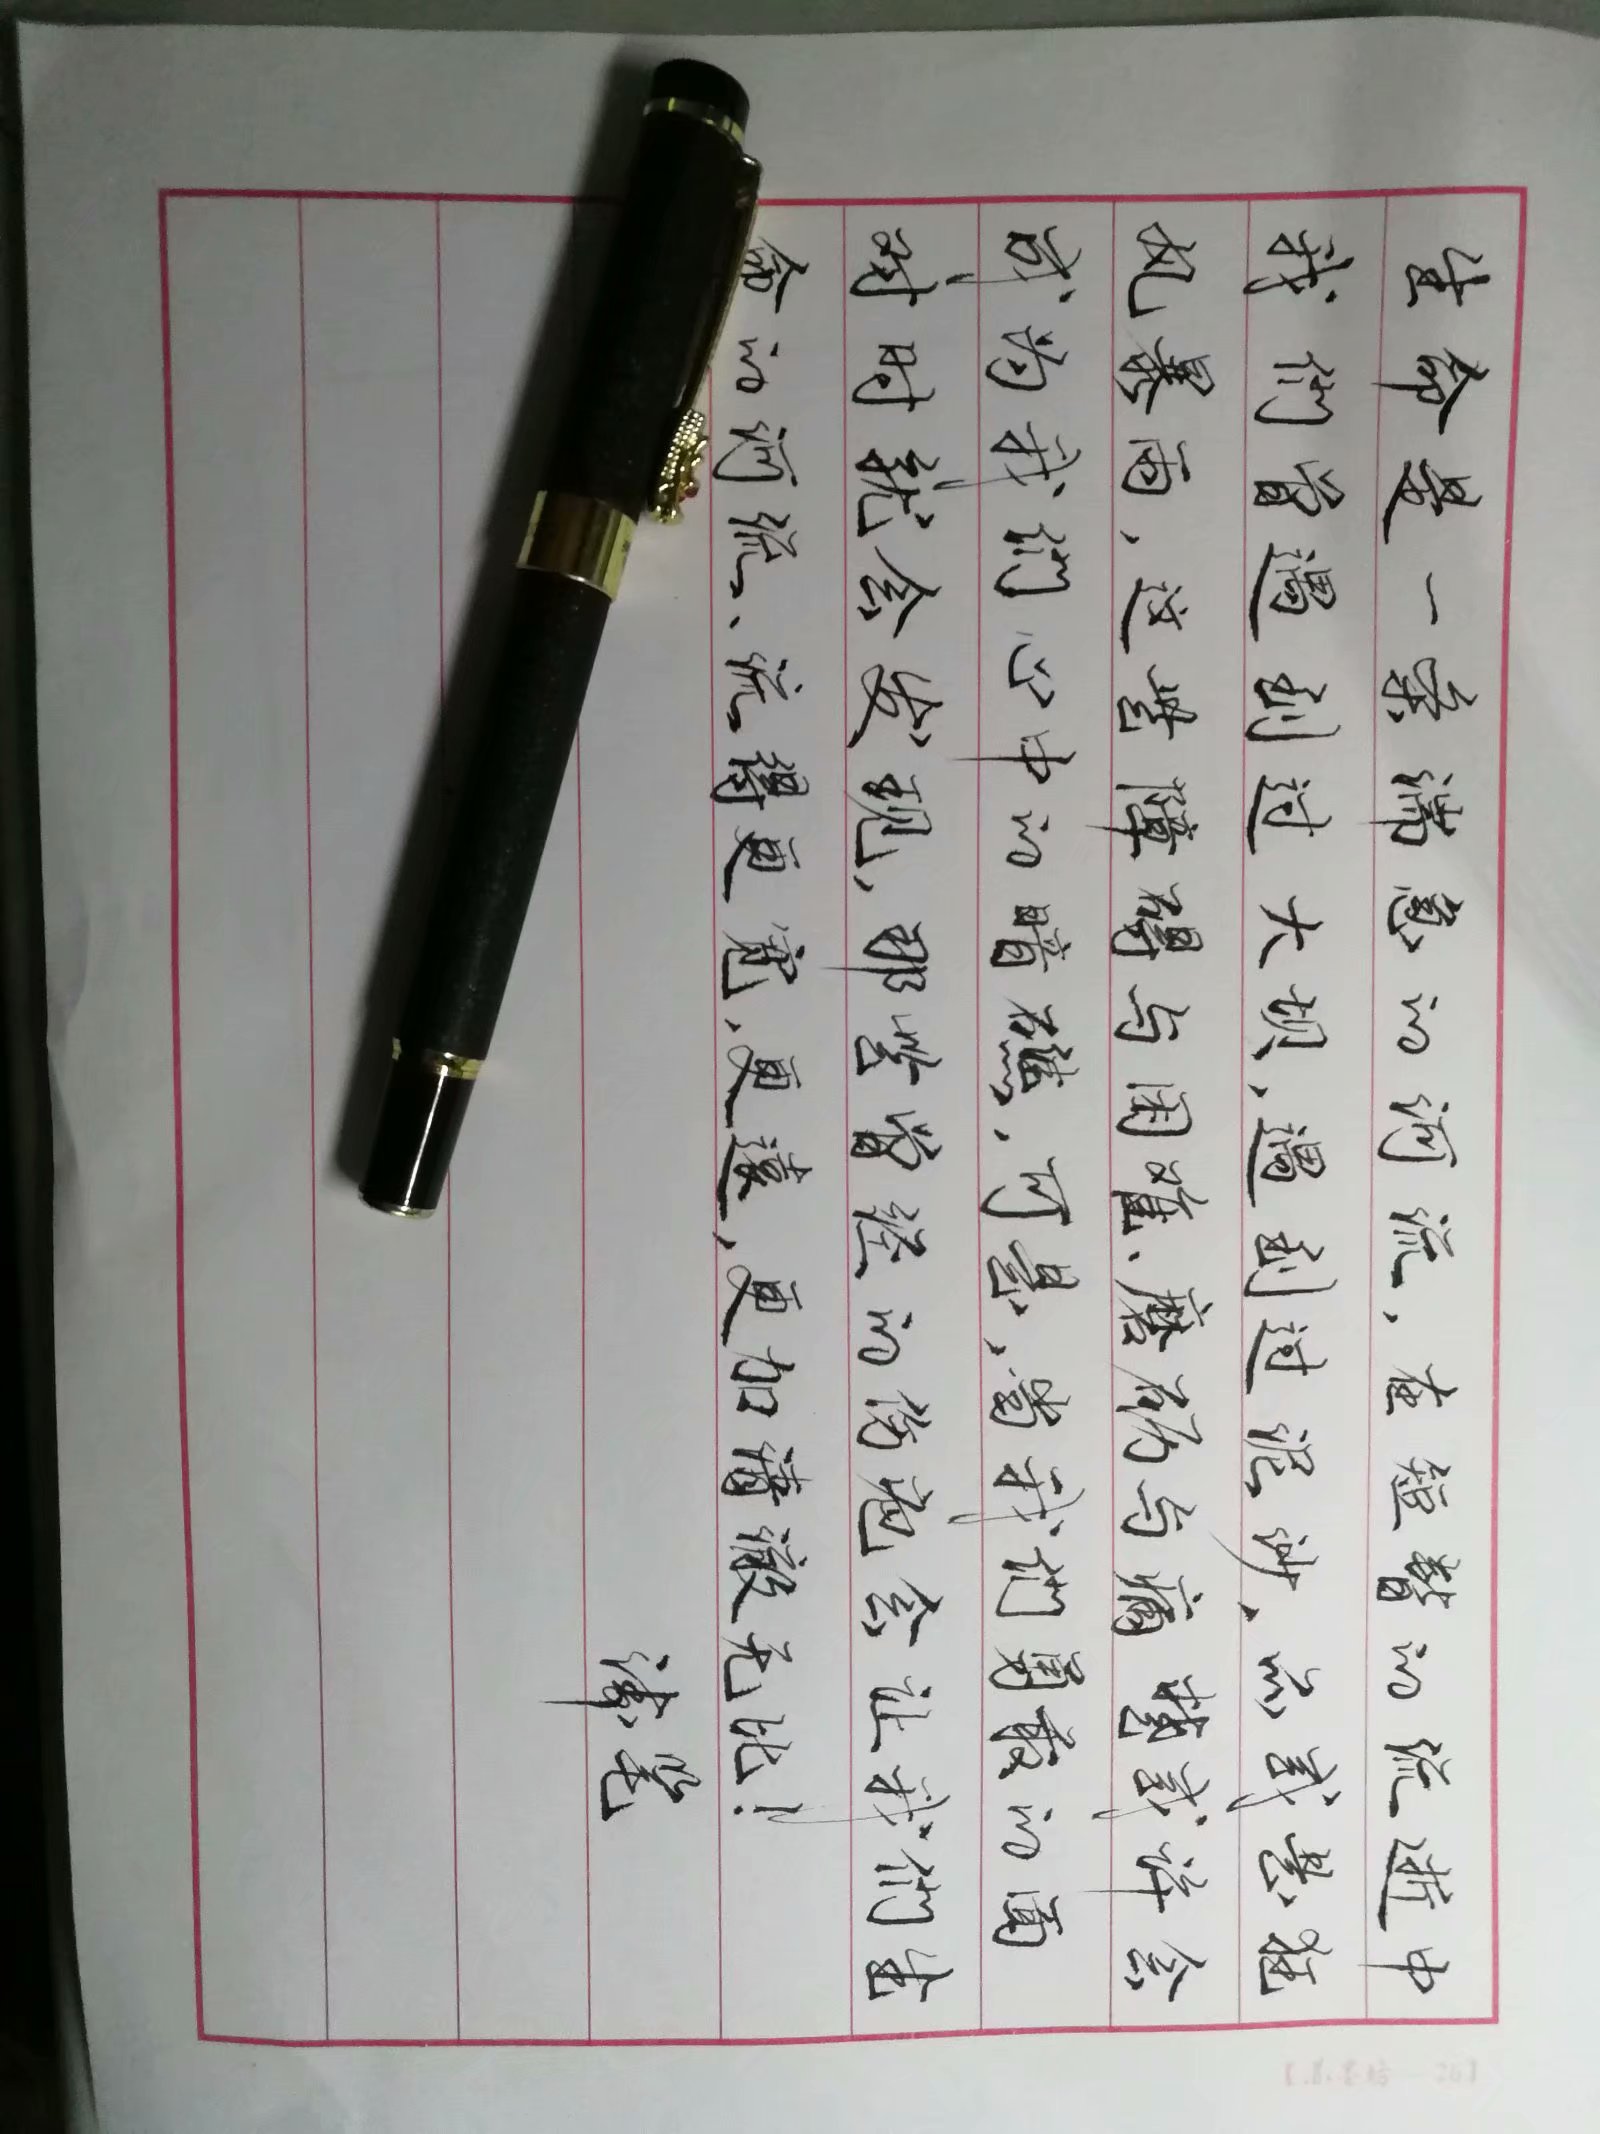 生命是一条湍急的河流，在短暂的流逝中
我们曾遇到过大坝，遇到过泥沙，亦或是狂
风暴雨，这些障碍与困难、磨砺与痛楚或许会
成为我们心中的暗礁，可是，当我们勇敢的面
对时就会发现，那些曾经的伤疤会让我们生
命的河流、流得更宽，更遠，更加清澈无比！
笔